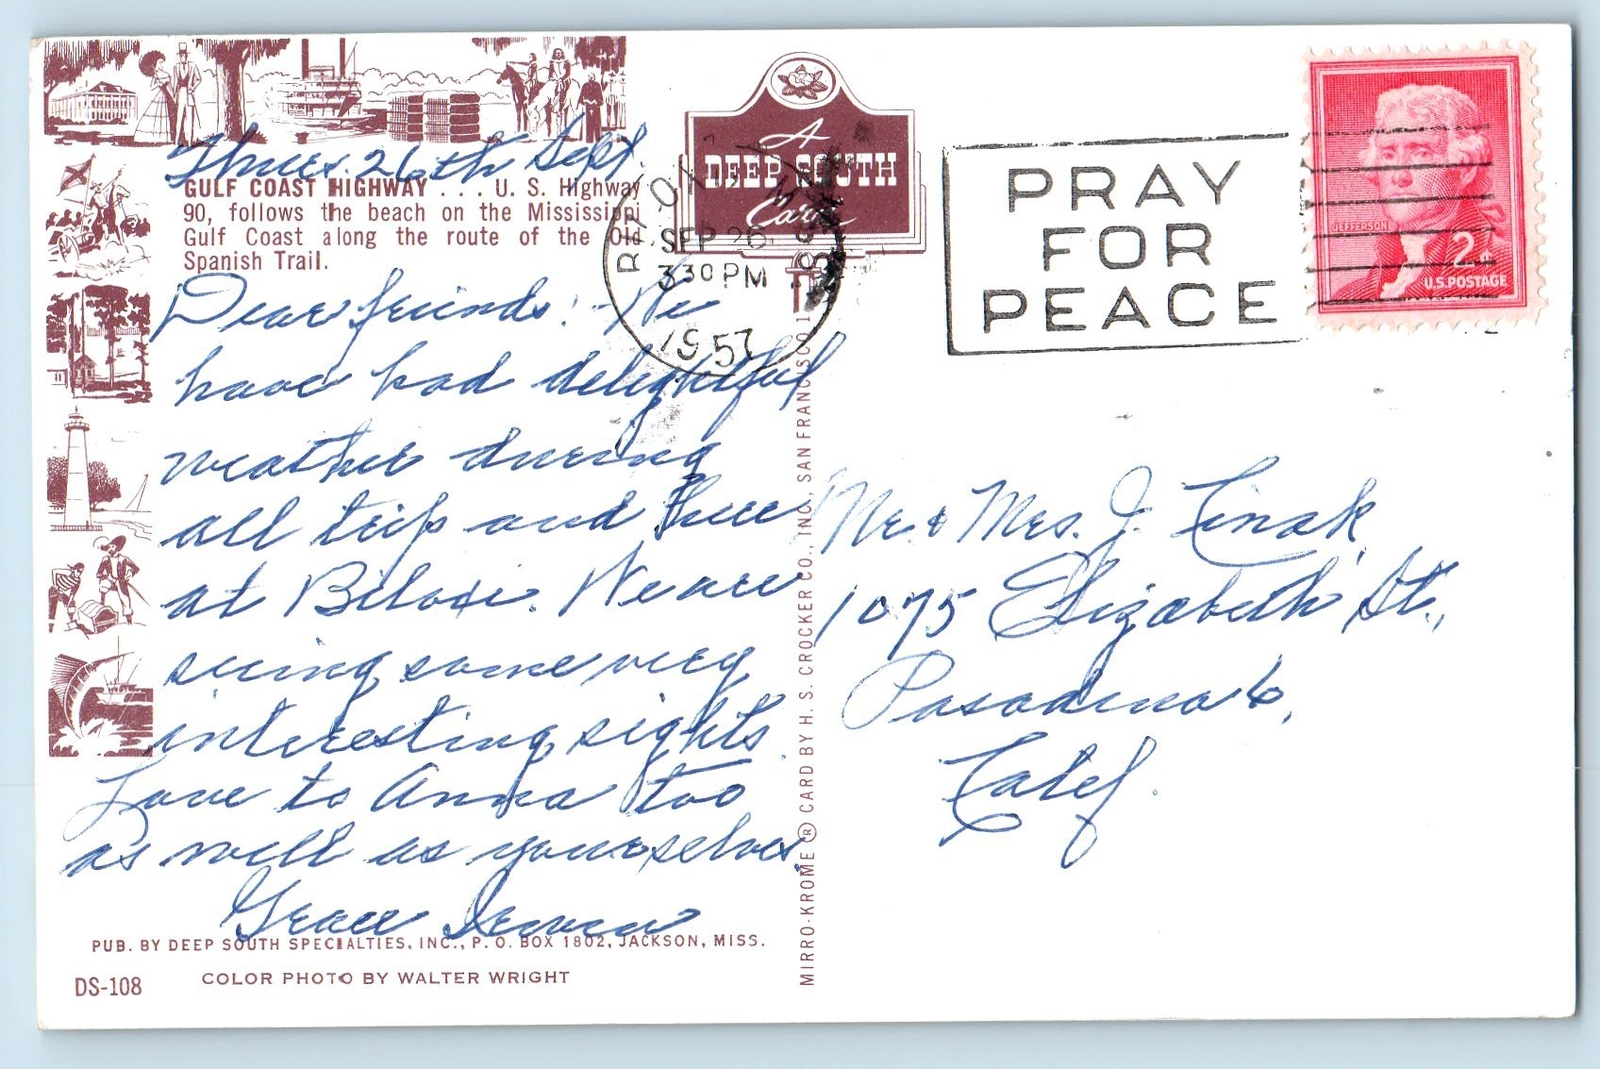 Thurs. 26th Sept.
GULF COAST HIGHWAY . . . U. S. Highway
90, follows the beach on the Mississippi
Gulf Coast along the route of the Old
Spanish Trail.
Dear friends: We
have had delightful
weather during
all trip and here
at Biloxi. We are
seeing some very
interesting sights.
Love to Anna too
as well as yourselves.
Grace
PUB. BY DEEP SOUTH SPECIALTIES, INC., P. O. BOX 1802, JACKSON, MISS.
DS-108
COLOR PHOTO BY WALTER WRIGHT
A
DEEP SOUTH
Card
BILOXI
MISS
SEP 26
3 30 PM
1957
MIRRO-KROME ® CARD BY H. S. CROCKER CO., INC., SAN FRANCISCO 1
PRAY
FOR
PEACE
JEFFERSON
2¢
U.S. POSTAGE
Mr. & Mrs. J.
1075 Elizabeth St.,
Pasadena 6,
Calif.